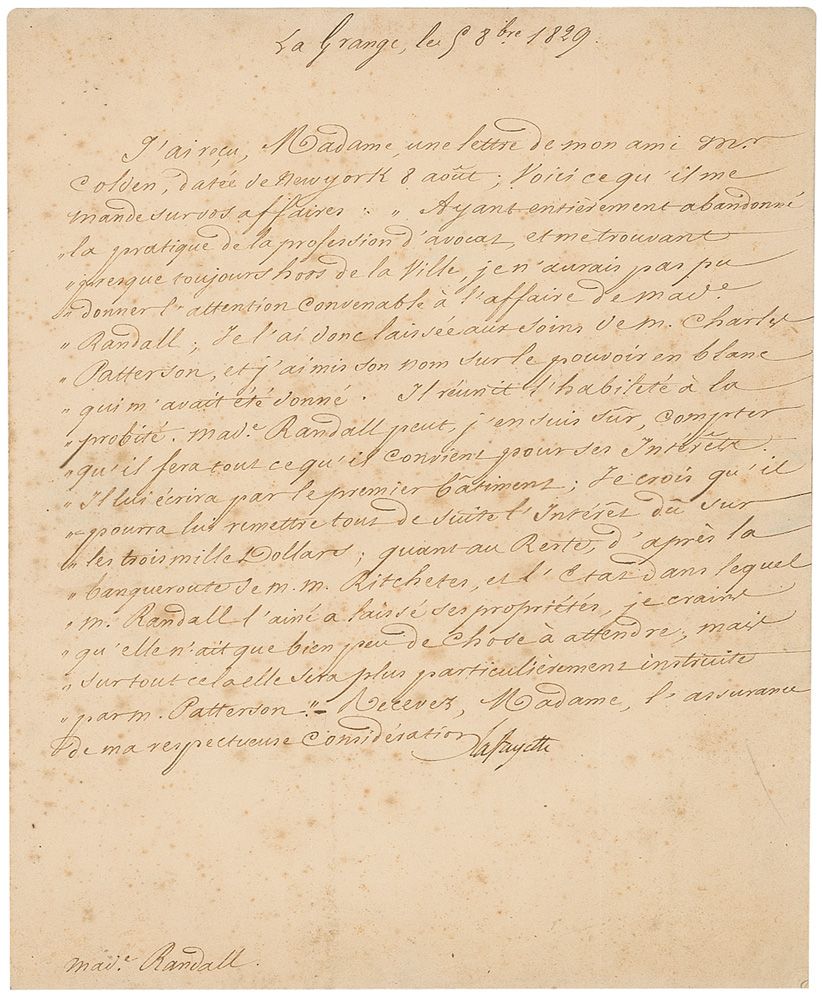 La Grange, le 5 8bre 1829.
J'ai reçu, Madame, une lettre de mon ami Mr
Colden, datée de New york 8 août; Voici ce qu'il me
mande sur vos affaires : " Ayant entièrement abandonné
" la pratique de la profession d'avocat, et me trouvant
" presque toujours hors de la Ville, je n'aurais pas pu
" donner l'attention convenable à l'affaire de Made
" Randall; Je l'ai donc laissée aux soins de M. Charles
" Patterson, et j'ai mis son nom sur le pouvoir en blanc
" qui m'avait été donné. Il réunit l'habileté à la
" probité. Made Randall peut, j'en suis sûr, compter
" qu'il fera tout ce qu'il convient pour ses Intérêts.
" Il lui écrira par le premier bâtiment; Je crois qu'il
" pourra lui remettre tout de suite l'Intérêt dû sur
" les trois mille Dollars; quant au Reste, d'après la
" banqueroute de M. M. Ritchetes, et l'Etat dans lequel
" M. Randall l'ainé a laissé ses propriétés, je crains
" qu'elle n'ait que bien peu de Chose à attendre; mais
" sur tout cela elle sera plus particulièrement instruite
" par M. Patterson ". Recevez, Madame, l'assurance
de ma respectueuse Considération
Lafayette
Made Randall.